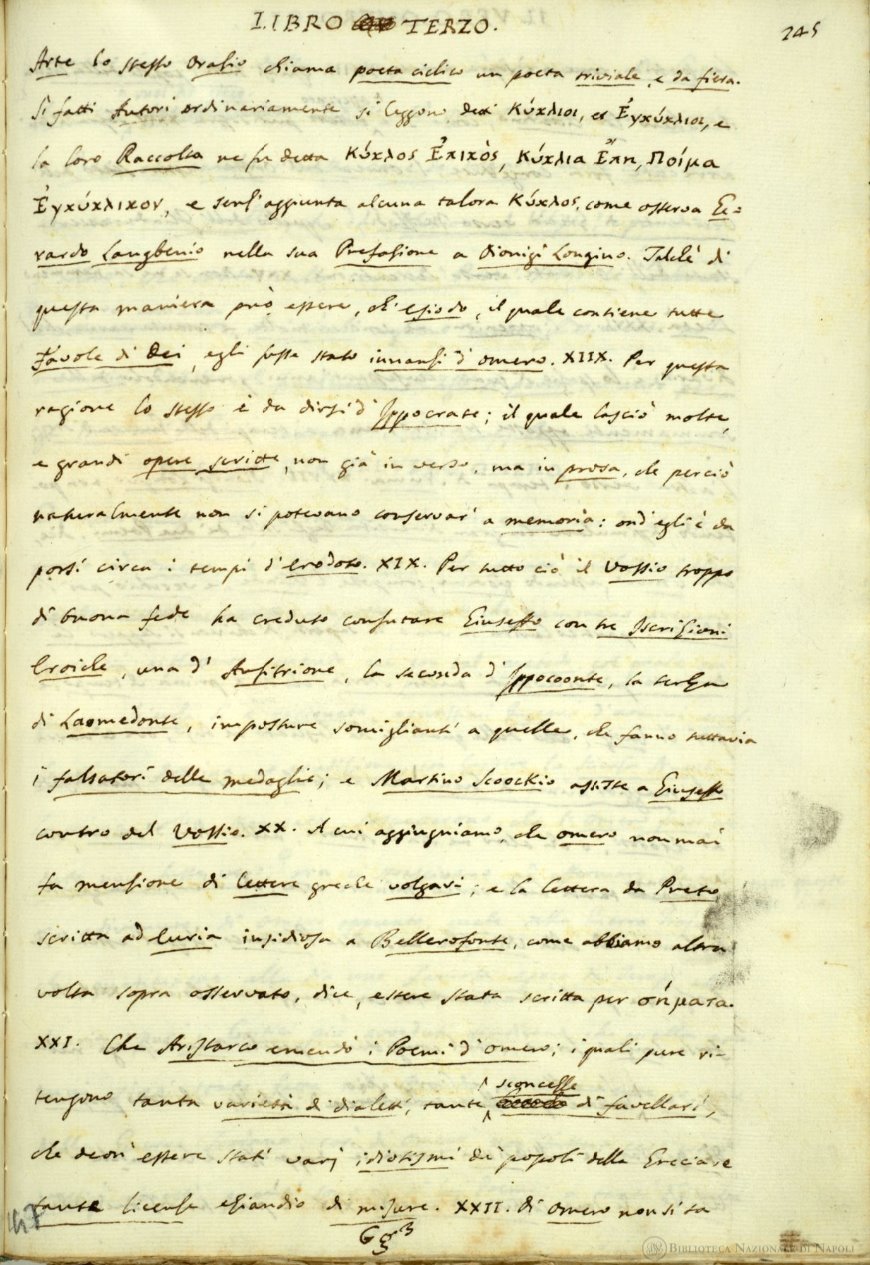 LIBRO TERZO.
245
Arte lo stesso Orazio chiama poeta ciclico un poeta triviale, e da fiera.
Sì fatti Autori ordinariamente si leggono detti Κύκλιοι, et Ἐγκύκλιοι, e
la loro Raccolta ne fu detta Κύκλος Ἐπικὸς, Κύκλια Ἔπη, Ποίμα
Ἐγκύκλικον, e senz'aggiunta alcuna talora Κύκλος, come osserva Ge=
rardo Langbenio nella sua Prefazione a Dionigi Longino. Talchè di
questa maniera può essere, ch'Esiodo, il quale contiene tutte
Favole di Dei, egli fusse stato innanzi d'Omero. XIIX. Per questa
ragione lo stesso è da dirsi d'Ippocrate; il quale lasciò molte,
e grandi opere scritte, non già in verso, ma in prosa, che perciò
naturalmente non si potevano conservar' a memoria: ond'egli è da
porsi circa i tempi d'Erodoto. XIX. Per tutto ciò il Vossio troppo
di buona fede ha creduto confutare Giuseffo con tre Iscrizioni
Eroiche, una d'Anfitrione, la seconda d'Ippocoonte, la terza
di Laomedonte, imposture somiglianti a quelle, che fanno tuttavia
i falsatori delle medaglie; e Martino Scoockio assiste a Giuseffo
contro del Vossio. XX. A cui aggiugniamo, che Omero non mai
fa menzione di lettere greche volgari; e la lettera da Preto
scritta ad Euria insidiosa a Bellerofonte, come abbiamo altra
volta sopra osservato, dice, essere stata scritta per σήματα.
XXI. Che Aristarco emendò i Poemi d'Omero; i quali pure ri-
tengono tanta varietà di dialetti, tante sconcezze di favellari,
che deon' essere stati varj idiotismi de' popoli della Grecia; e
tante licenze eziandio di misure. XXII. Di Omero non si sa
Gg 3
BIBLIOTECA NAZIONALE DI NAPOLI